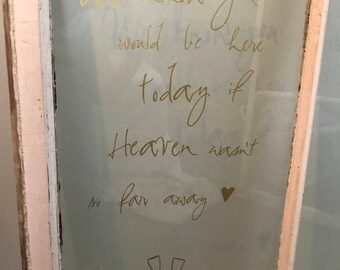 would be here
today if
Heaven wasn't
so far away ♥